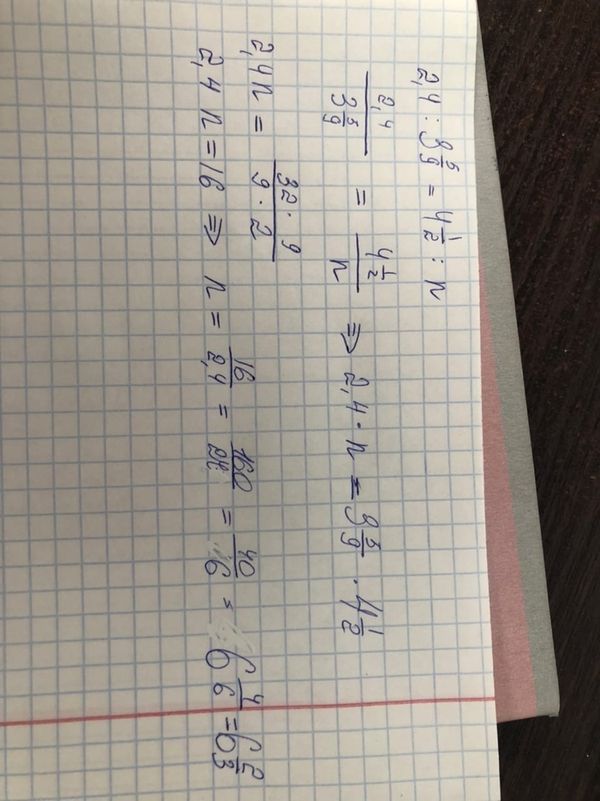 2,4 : 3 5/9 = 4 1/2 : n
2,4 / 3 5/9 = 4 1/2 / n ⇒ 2,4 · n = 3 5/9 · 4 1/2
2,4 n = 32 · 9 / 9 · 2
2,4 n = 16 ⇒ n = 16/2,4 = 160/24 = 40/6 = 6 4/6 = 6 2/3